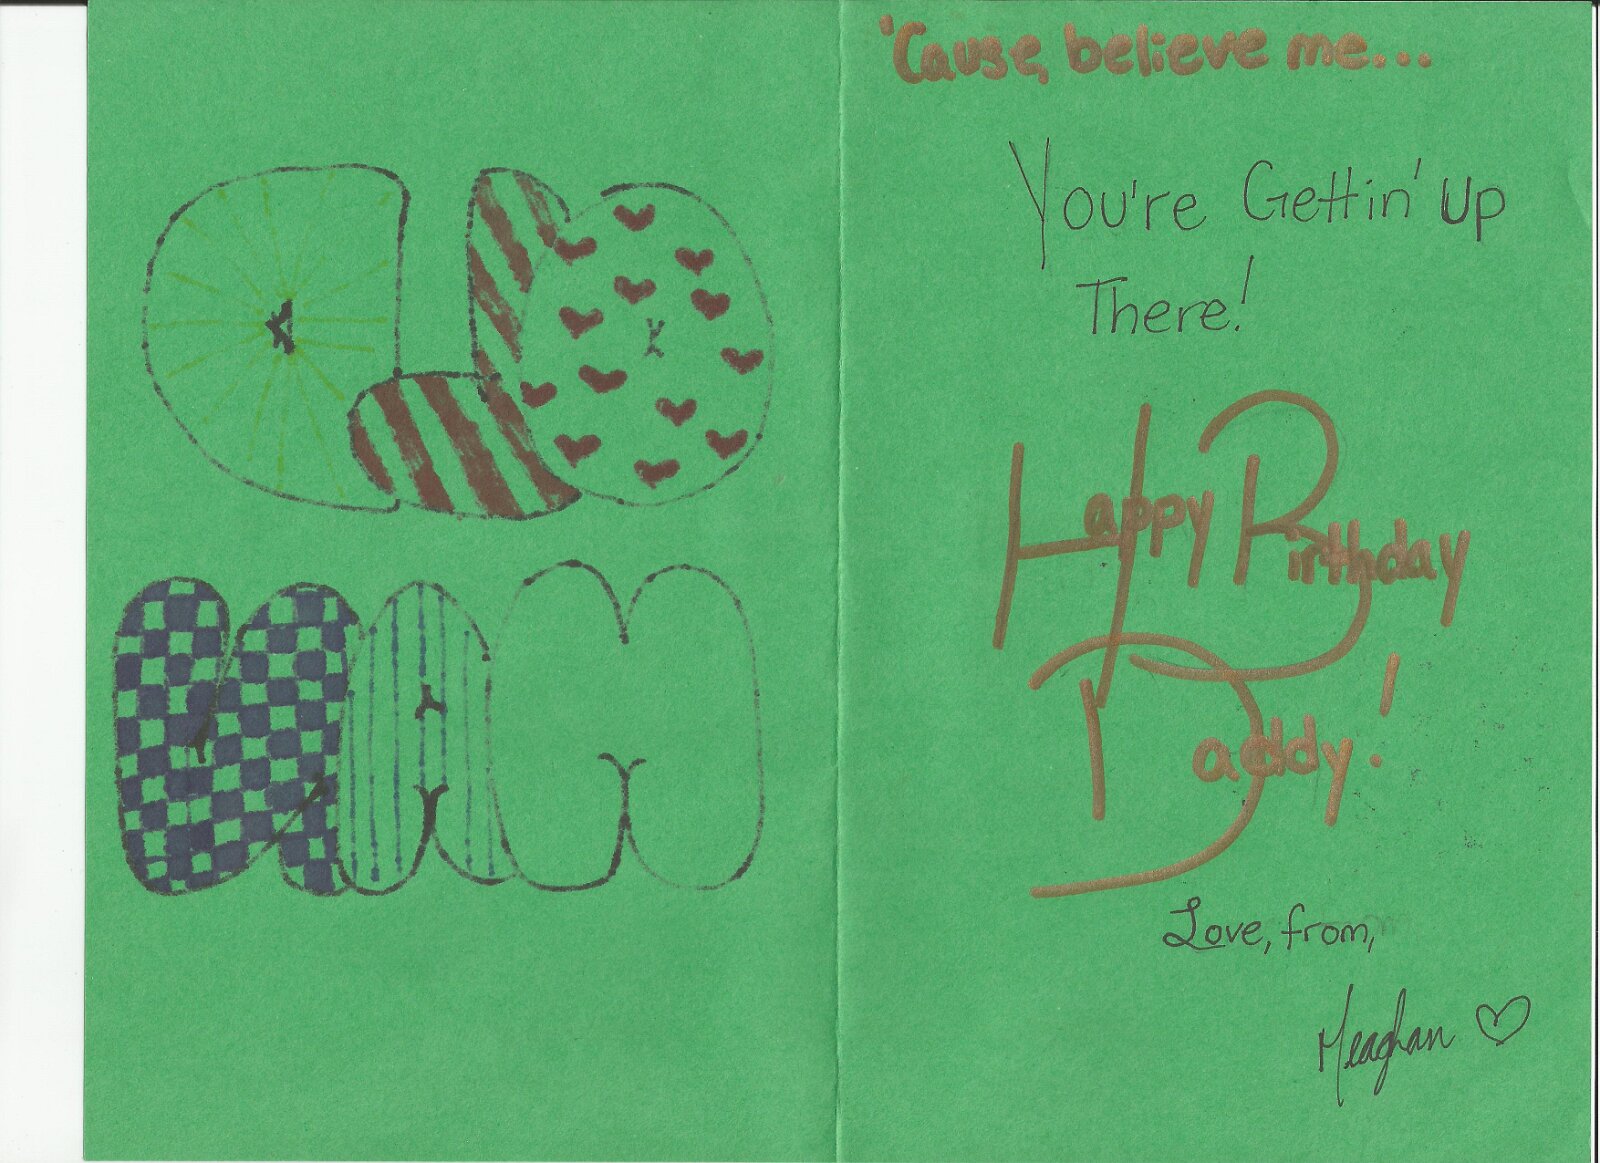 OLD
MAN
'Cause, believe me...
You're Gettin' up
There!
Happy Birthday
Daddy!
Love, from,
Meaghan ♡